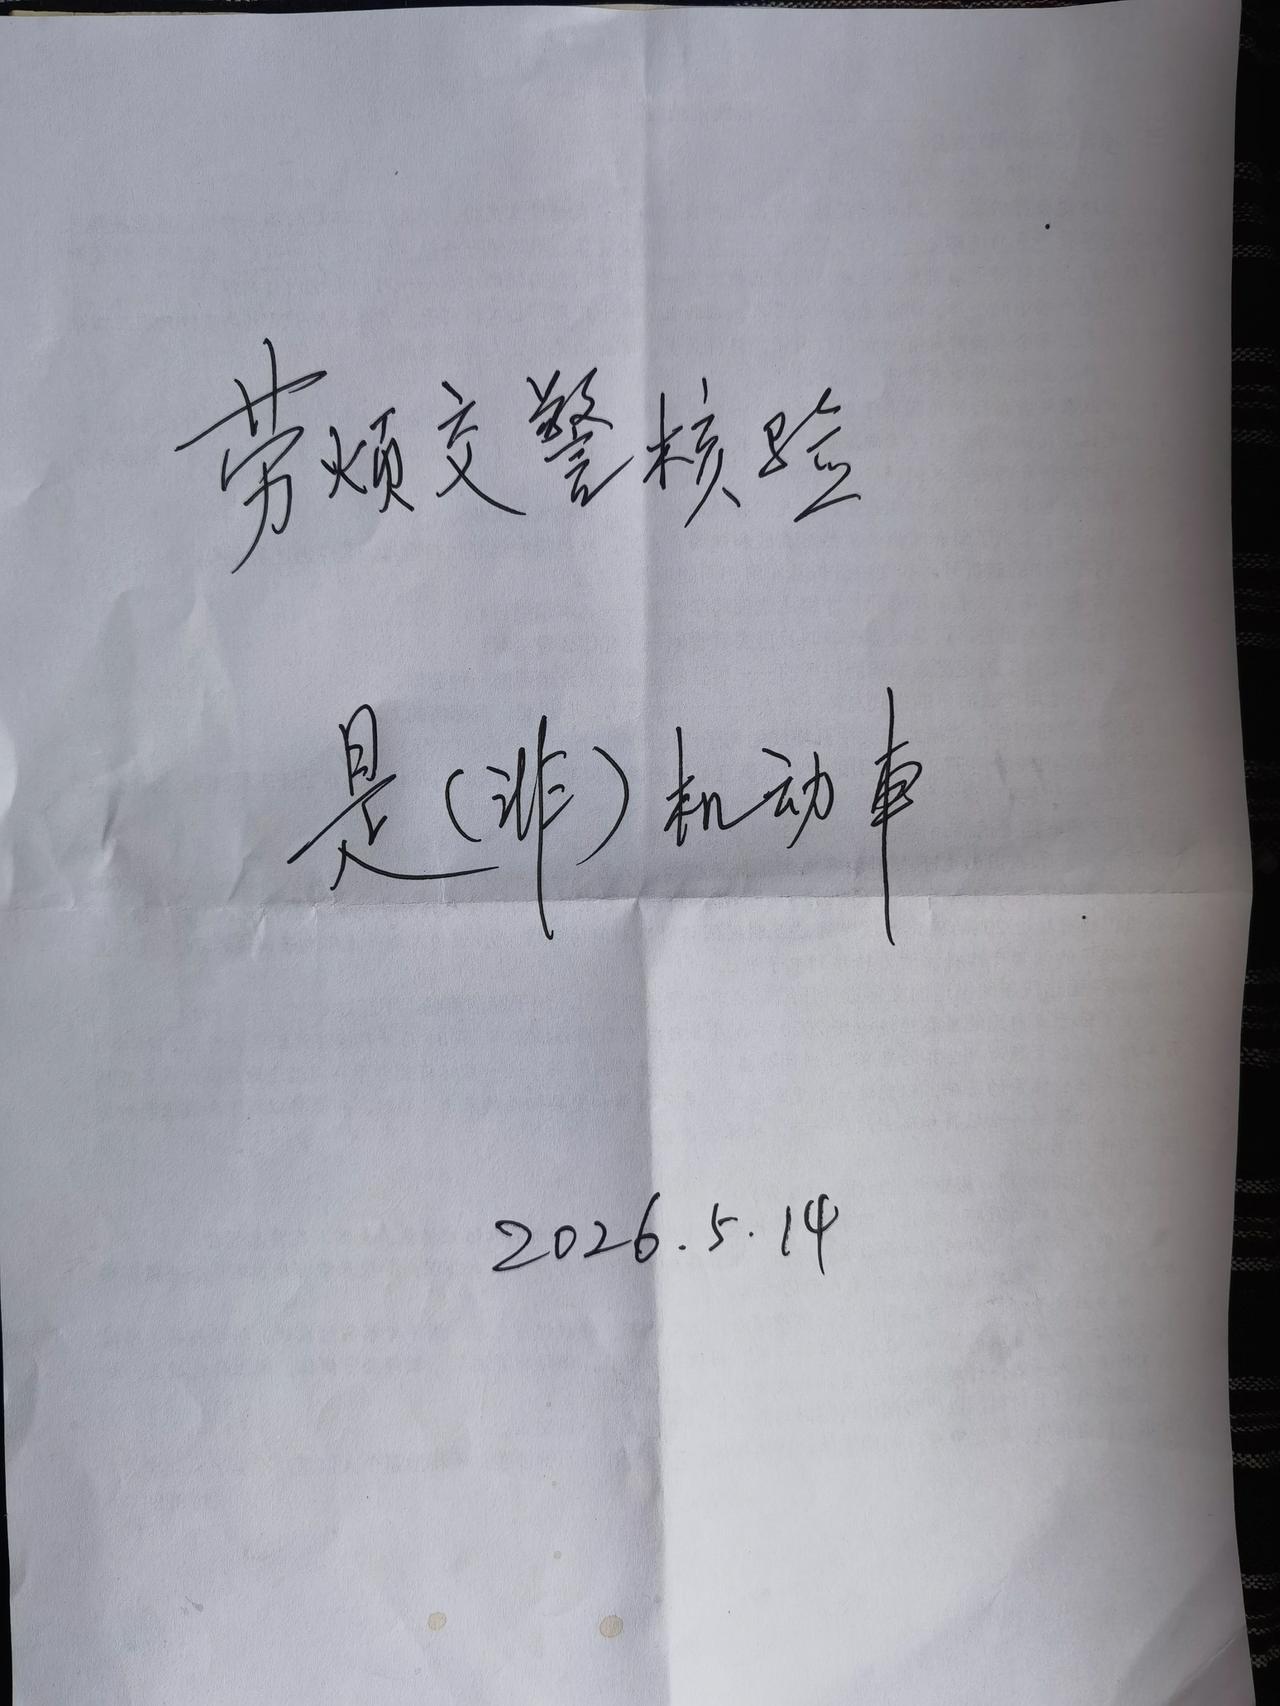 劳烦交警核验
是(非)机动車
2026.5.14